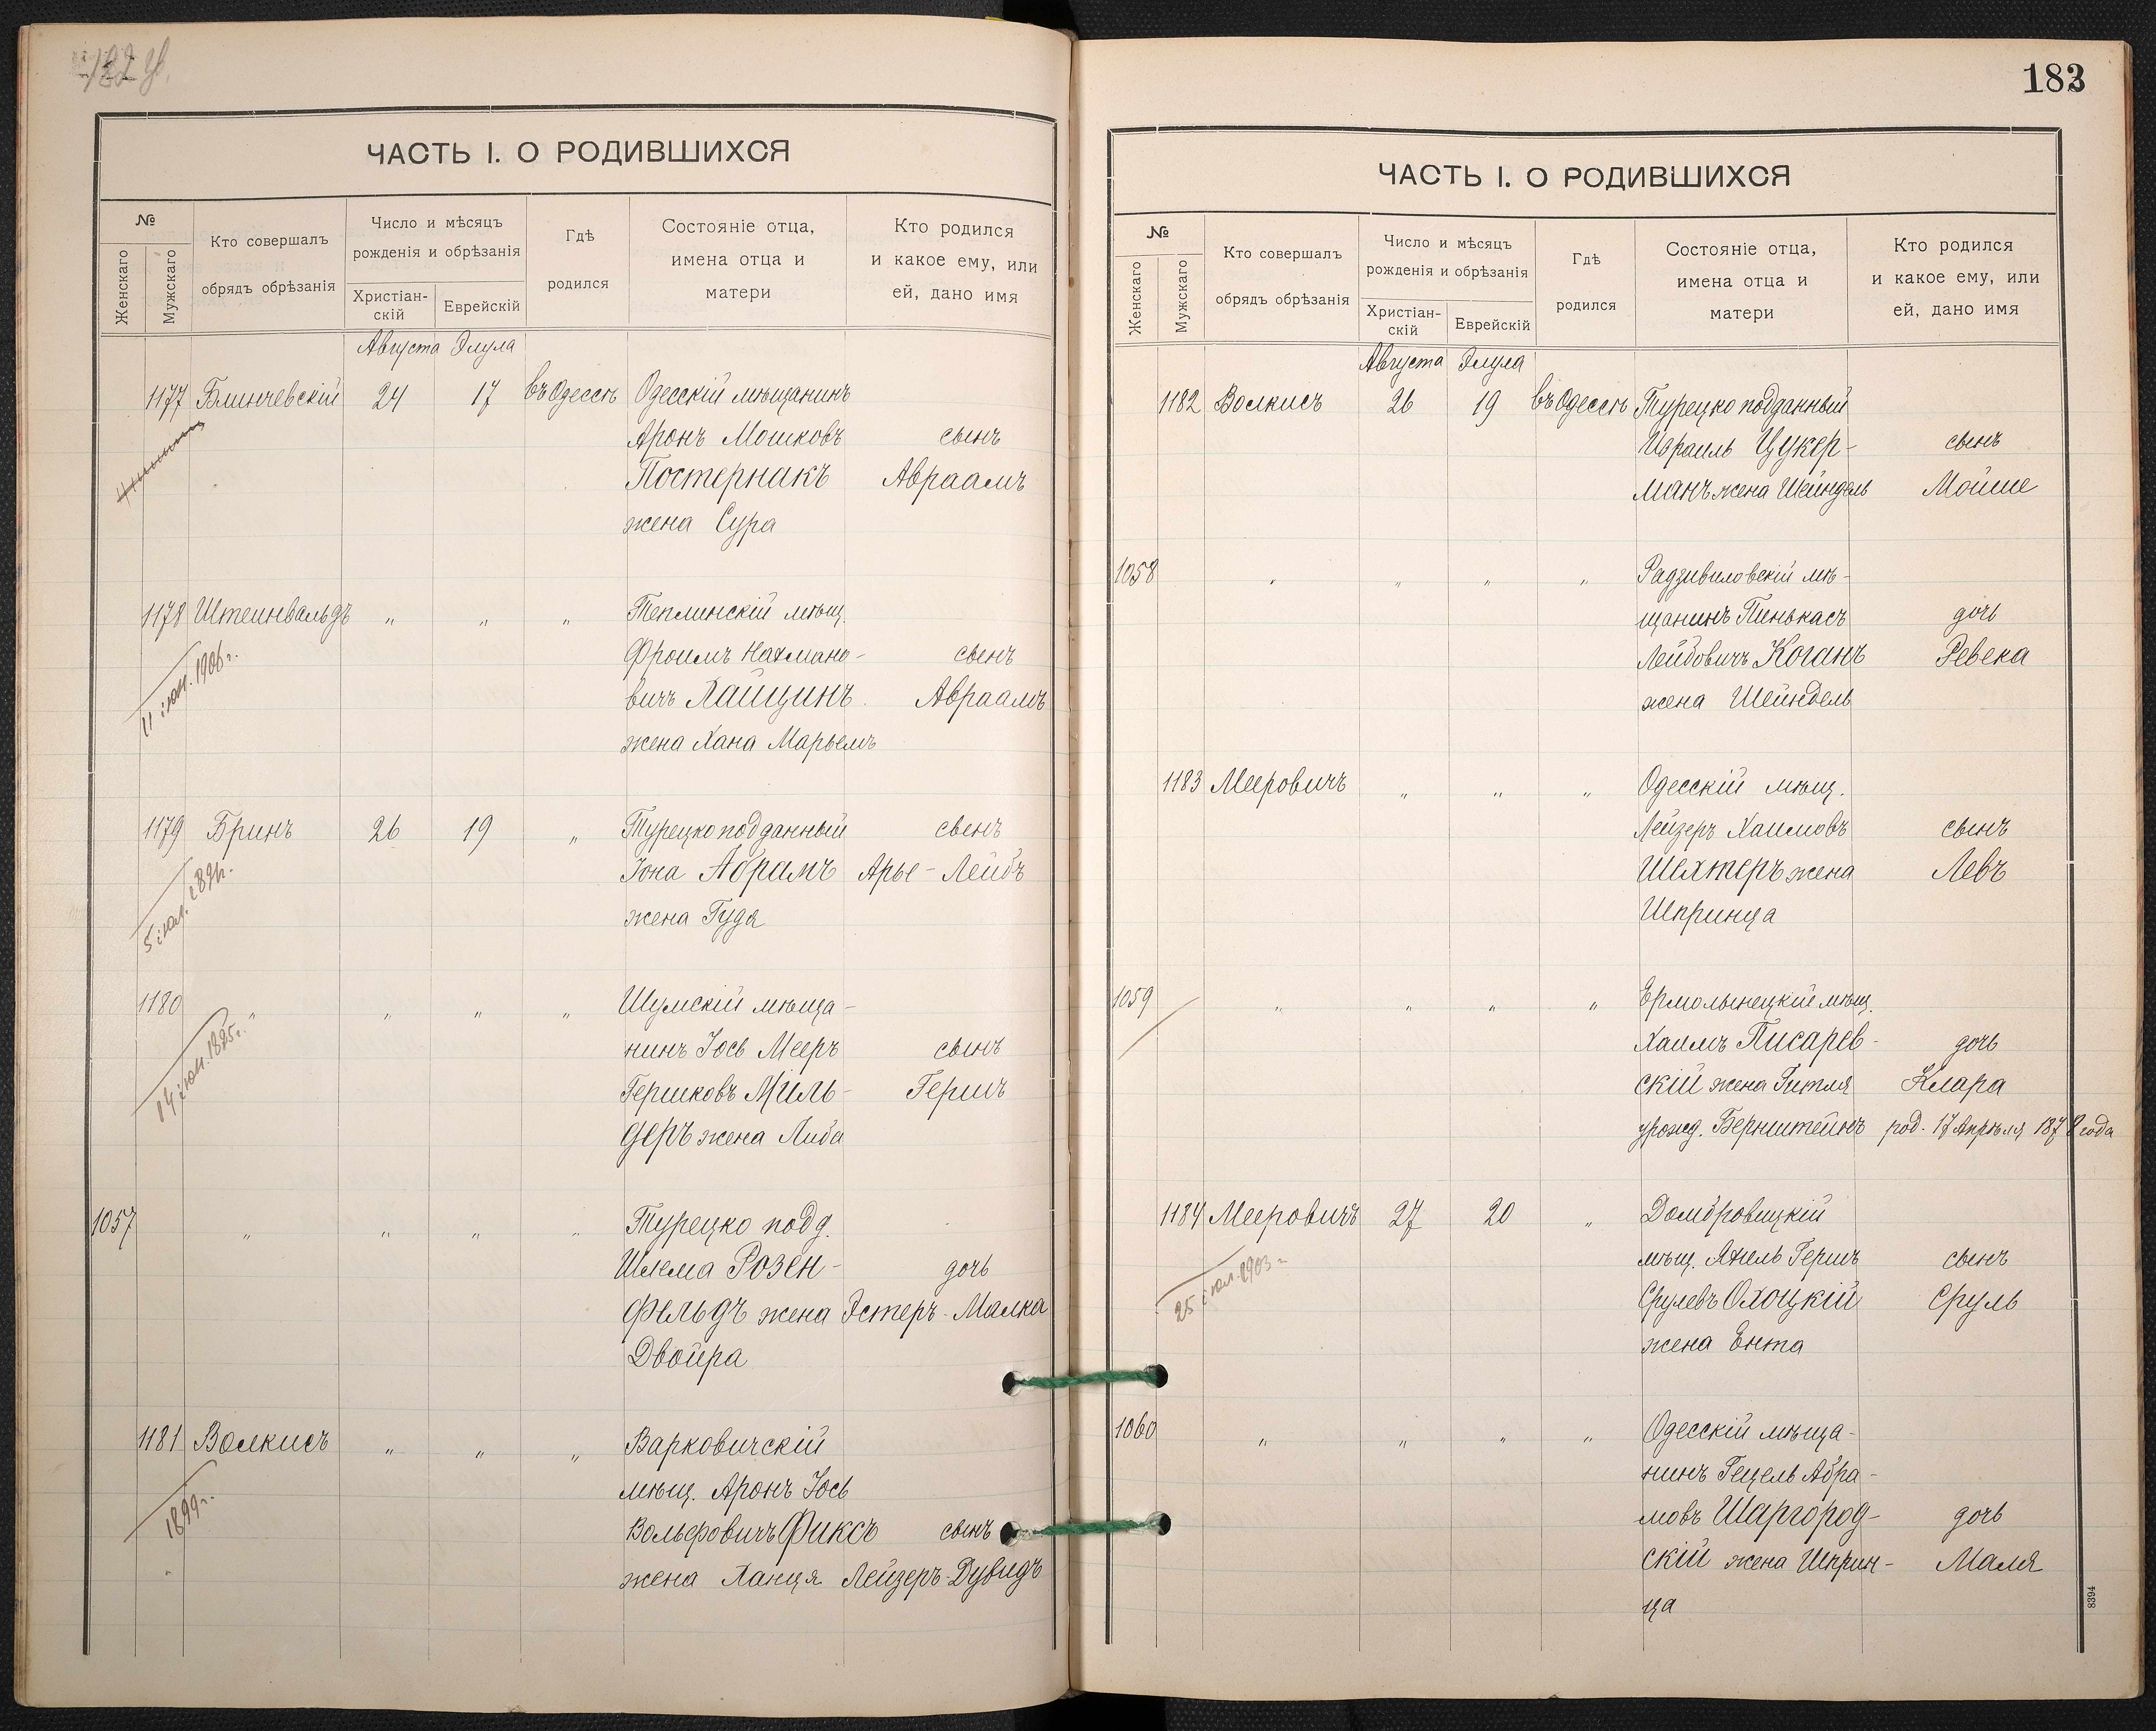 183
ЧАСТЬ I. О РОДИВШИХСЯ
№
Женскаго
Мужскаго
Кто совершалъ
обрядъ обрѣзанія
Число и мѣсяцъ
рожденія и обрѣзанія
Христіан-
скій
Еврейскій
Гдѣ
родился
Состояніе отца,
имена отца и
матери
Кто родился
и какое ему, или
ей, дано имя
Августа Элула
1177 Блинчевскій 24 17 въ Одессѣ Одесскій мѣщанинъ
Аронъ Мошковъ сынъ
Постернакъ Авраамъ
жена Сура
1178 Штейнвальдъ " " " Теплинскій мѣщ.
Фроимъ Нахмано- сынъ
вичъ Хайцинъ Авраамъ
жена Хана Марьемъ
11 іюн. 1906 г.
1179 Бринъ 26 19 " Турецкоподданный сынъ
Іона Абрамъ Арье-Лейбъ
жена Гуда
1180 " " " " Шумскій мѣща-
нинъ Іось Мееръ сынъ
Гершковъ Миль- Гершъ
деръ жена Либа
14 іюн. 1895 г.
1057 " " " " Турецко подд.
Шлема Розен- дочь
фельдъ жена Эстеръ-Малка
Двойра
1181 Волкисъ " " " Варковичскій
мѣщ. Аронъ Іось
Вольфовичъ Фиксъ сынъ
жена Ханця Лейзеръ-Дувидъ
1899 г.
ЧАСТЬ I. О РОДИВШИХСЯ
№
Женскаго
Мужскаго
Кто совершалъ
обрядъ обрѣзанія
Число и мѣсяцъ
рожденія и обрѣзанія
Христіан-
скій
Еврейскій
Гдѣ
родился
Состояніе отца,
имена отца и
матери
Кто родился
и какое ему, или
ей, дано имя
Августа Элула
1182 Волкисъ 26 19 въ Одессѣ Турецко подданный
Израиль Цукер- сынъ
манъ жена Шейндель Мойше
1058 " " " " Радзивиловскій мѣ-
щанинъ Пинькасъ дочь
Лейбовичъ Коганъ Ревека
жена Шейндель
1183 Мееровичъ " " " Одесскій мѣщ.
Лейзеръ Хаимовъ сынъ
Шехтеръ жена Левъ
Шпринца
1059 " " " " Ермолынецкій мѣщ.
Хаимъ Писарев- дочь
скій жена Гитля Клара
урожд. Бернштейнъ род. 17 Апрѣля 1878 года
1184 Мееровичъ 27 20 " Домбровицкій
мѣщ. Ахель Гершъ сынъ
Срулевъ Охоцкій Сруль
жена Ента
25 іюл. 1903 г.
1060 " " " " Одесскій мѣща-
нинъ Гецель Абра-
мовъ Шаргород- дочь
скій жена Шприн- Маля
ца
8394